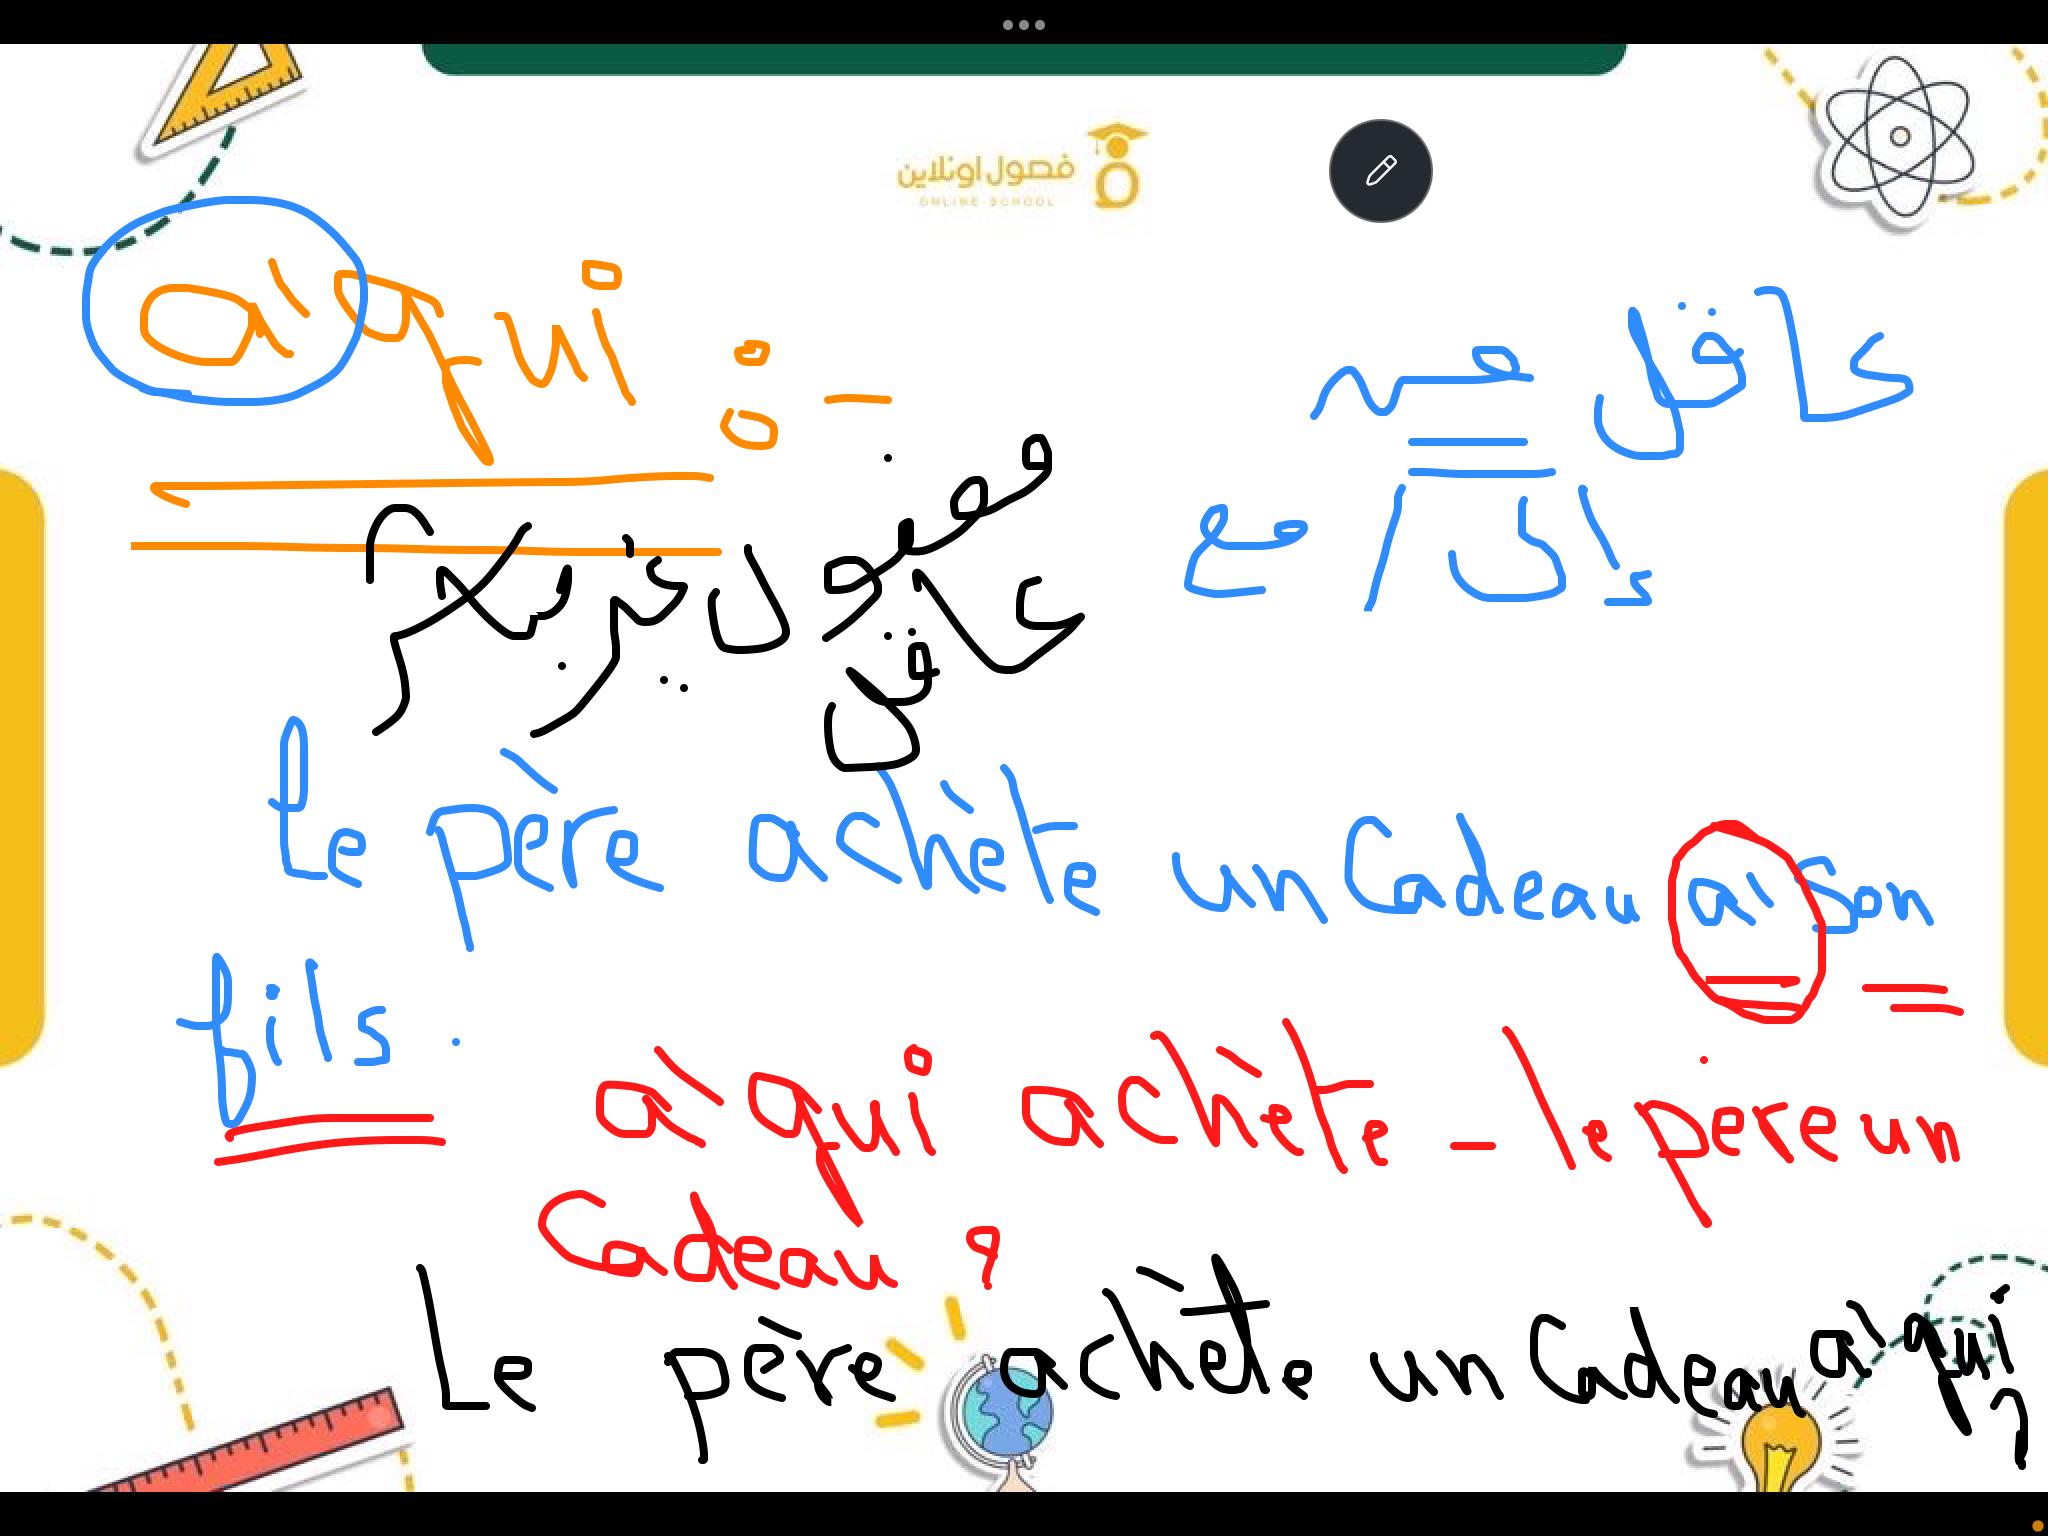 فصول اونلاين
ONLINE SCHOOL
à qui : -
عاقل مسـ
دائما مع à
مفعول غير مباشر
عاقل
Le père achète un Cadeau à Son
fils.
à qui achète - le père un
Cadeau ?
Le père achète un Cadeau à qui ?